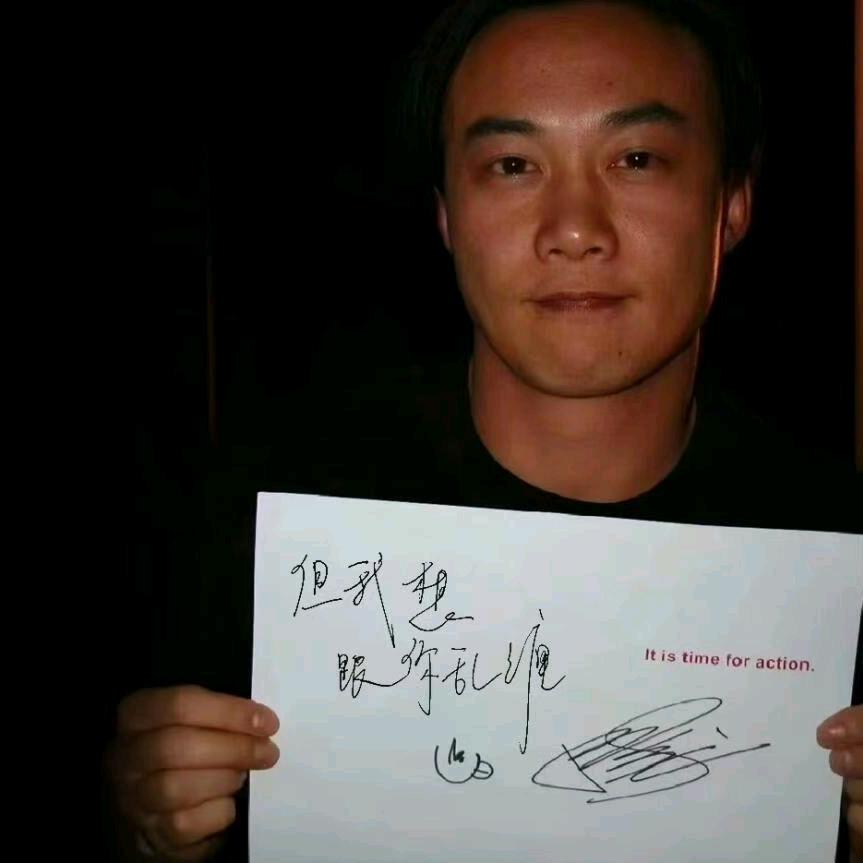 但我想
跟你乱缠
It is time for action.